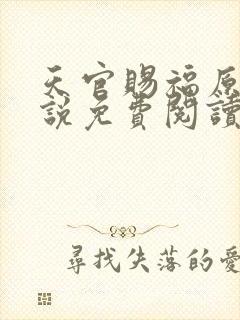 天官賜福原
說免費閱讀
尋找失落的愛